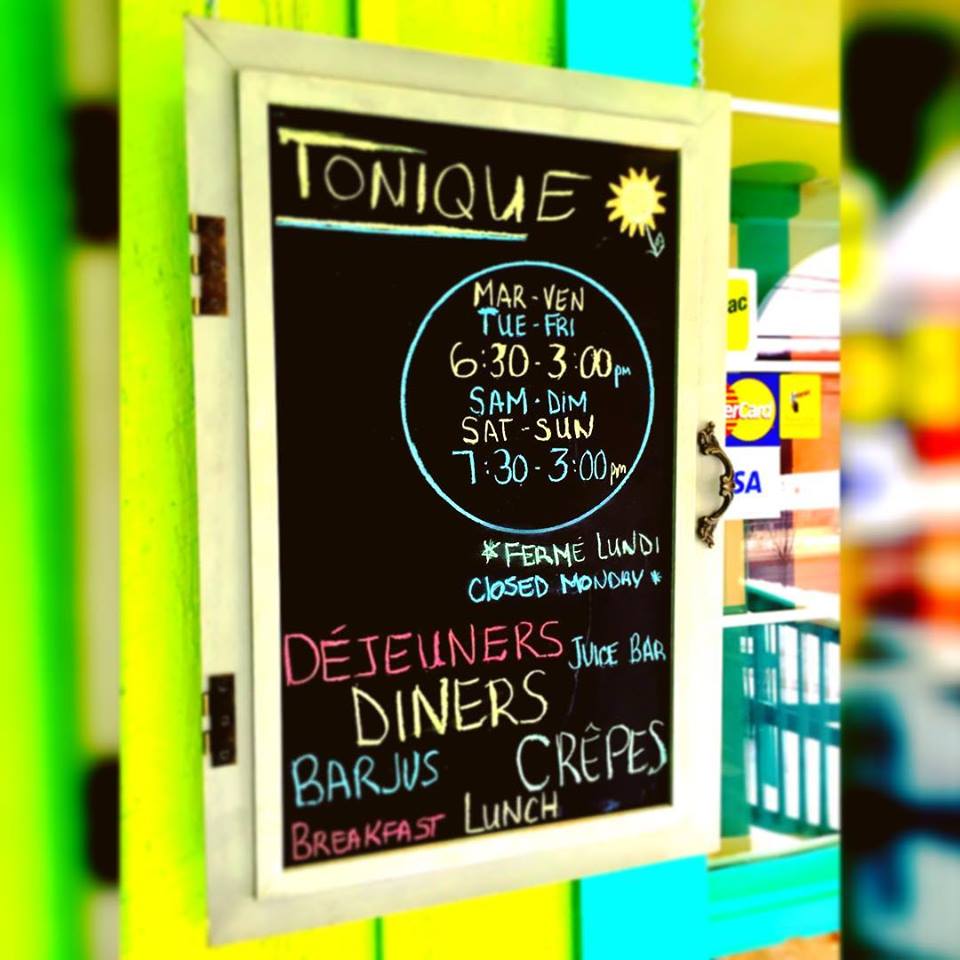 TONIQUE
MAR-VEN
TUE-FRI
6:30-3:00pm
SAM-DIM
SAT-SUN
7:30-3:00pm
*FERMÉ LUNDI
CLOSED MONDAY*
DÉJEUNERS JUICE BAR
DINERS
BARJUS CRÊPES
BREAKFAST LUNCH
ac
erCard
SA